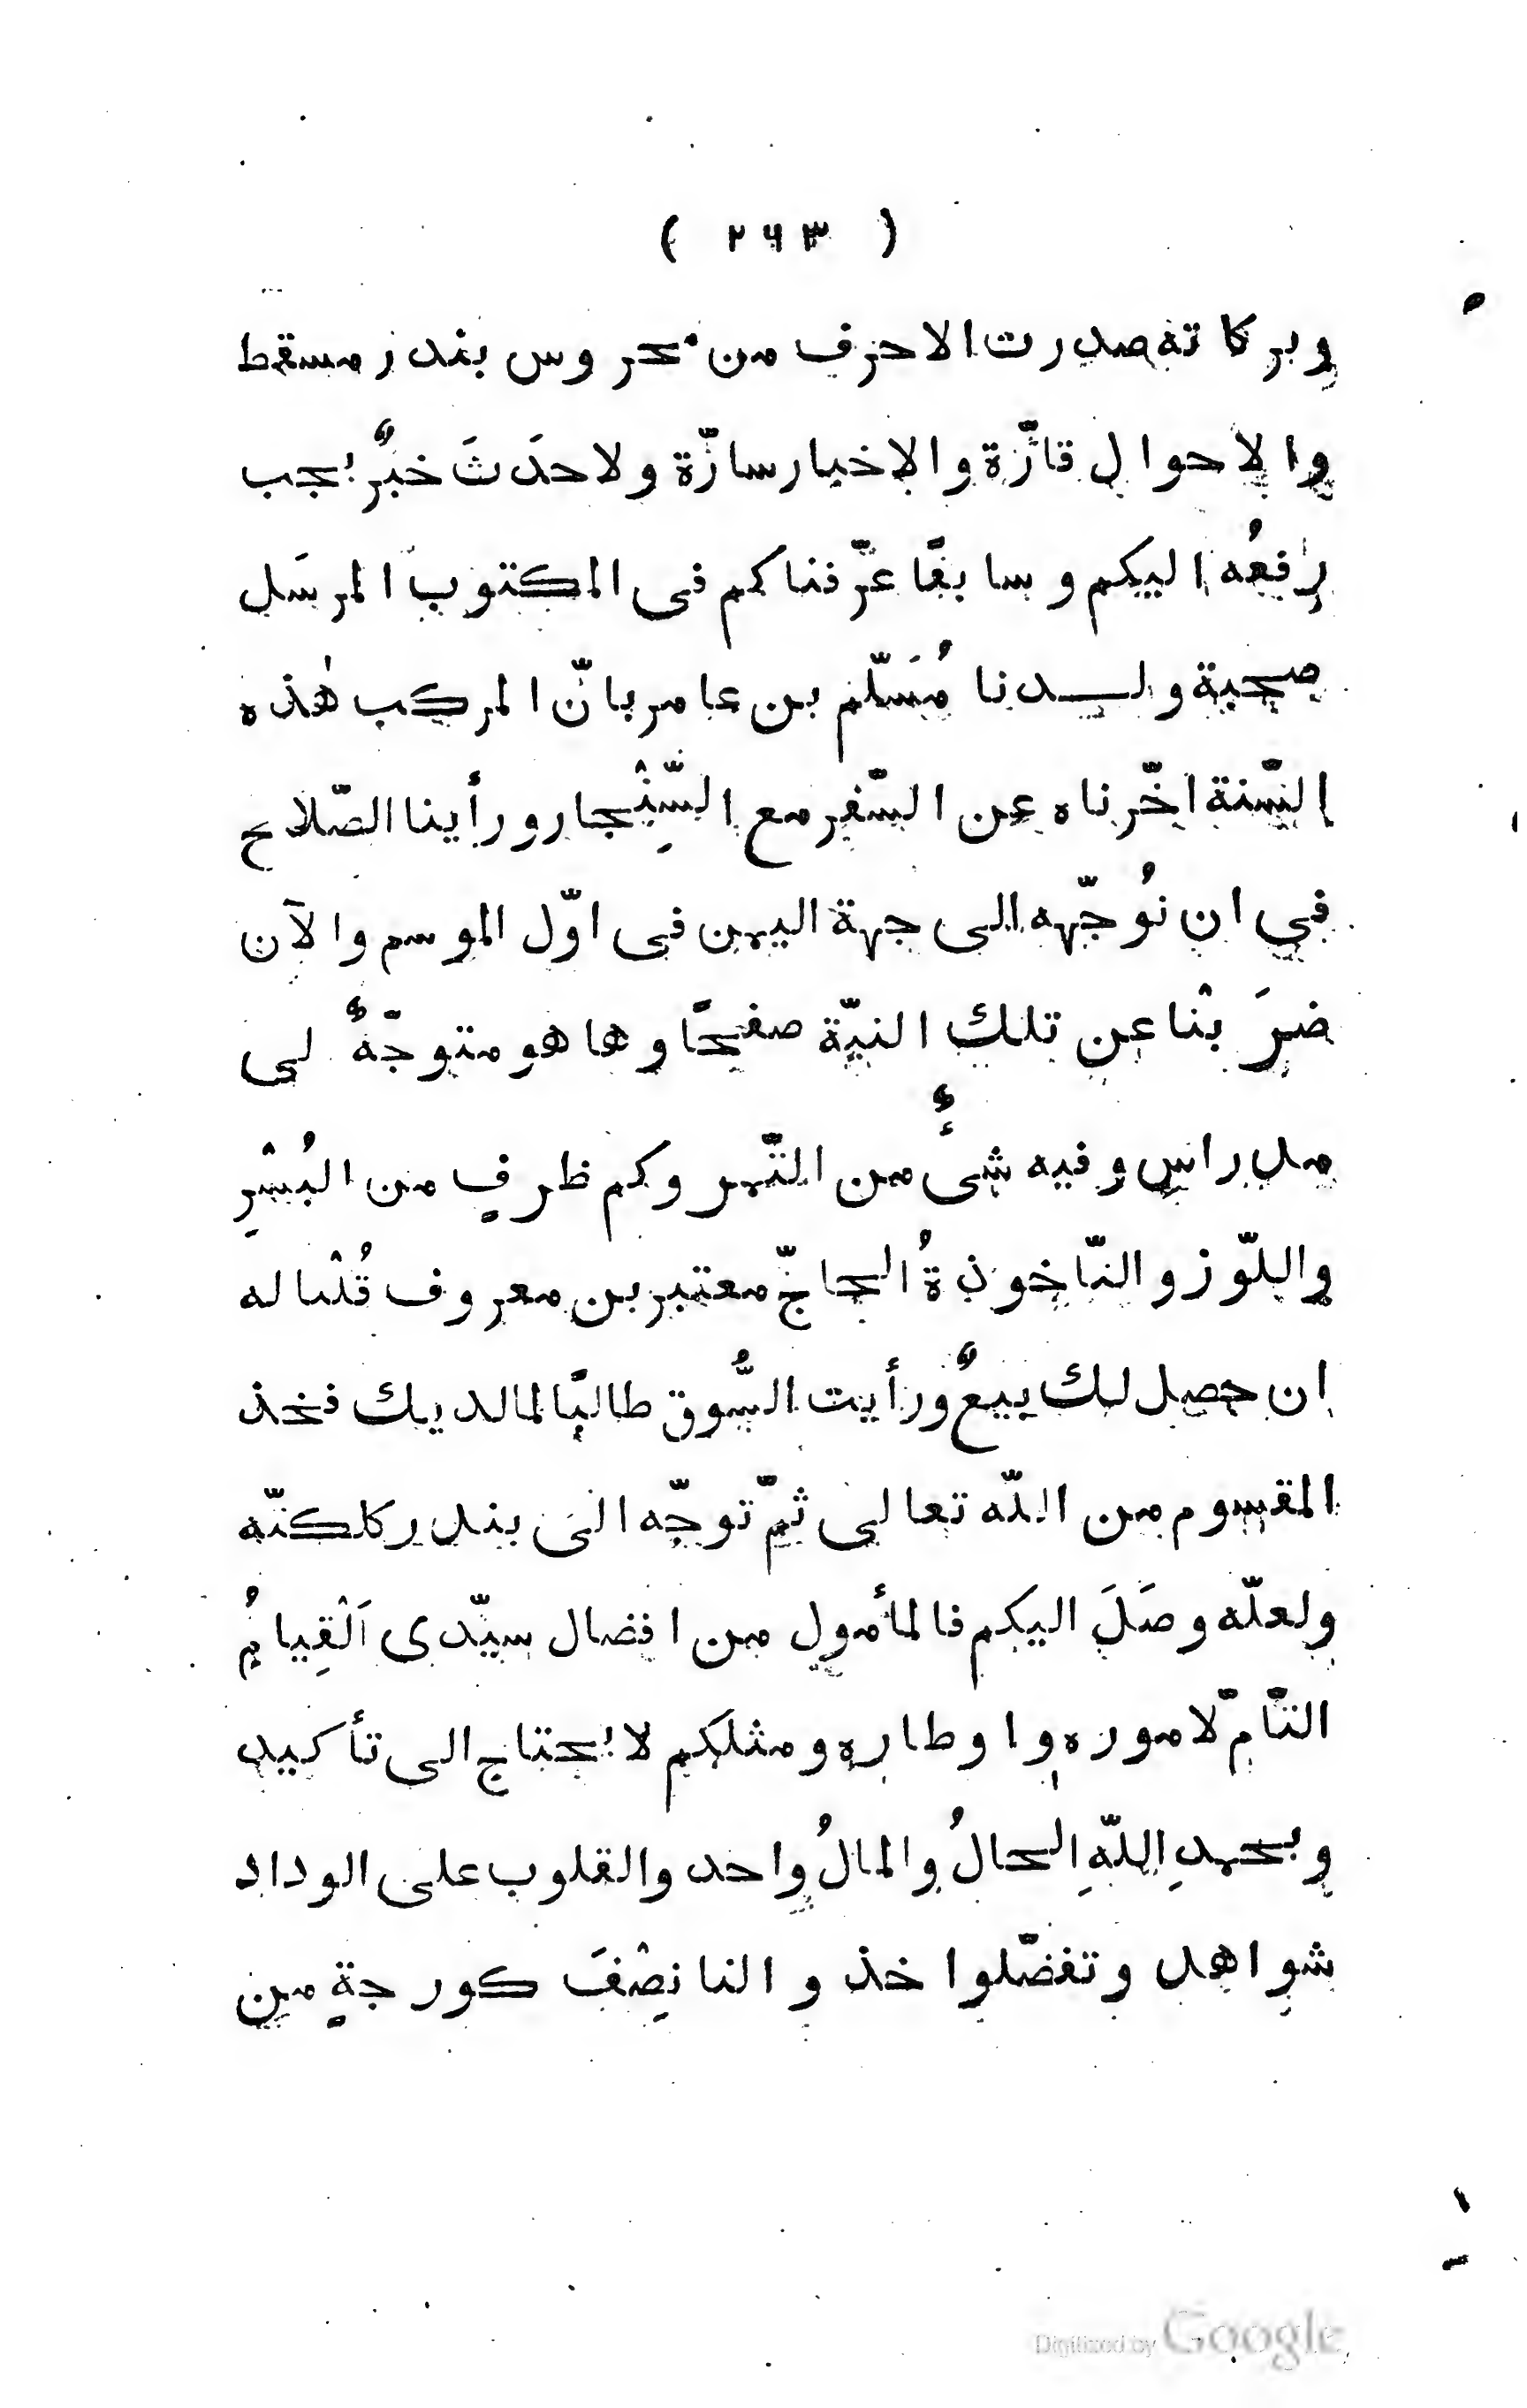 ( ٢٦٣ )
وبركاته صدرت الاحرف من محروس بندر مسقط
والاحوال قارّة والاخبار سارّة ولا حدَثَ خبرٌ يجب
رفعُه اليكم وسابقًا عرّفناكم فى المكتوب المرسَل
صحبة ولدنا مُسَلّم بن عامر بانّ المركب هٰذه
السّنة اخّرناه عن السّفر مع السِّنْجار ورأينا الصّلاح
في ان نُوجّهه الى جهة اليمن فى اوّل الموسم والآن
ضرَبْنا عن تلك النيّة صفحًا وها هو متوجّهٌ لى
مدراس وفيه شىٌٔ من التّمر وكم ظرفٍ من البُسْرِ
واللّوز والنّاخوذةُ الحاجّ معتبر بن معروف قُلْنا له
ان حصل لك بيعٌ ورأيت السُّوق طالبًا لما لديك فخذ
المقسوم من اللّه تعالى ثمّ توجّه الى بندر كلكتّه
ولعلّه وصَلَ اليكم فالمأمول من افضال سيّدى اَلْقِيامُ
التّامّ لاموره واوطاره ومثلكم لا يحتاج الى تأكيد
وبحمدِ اللّهِ الحالُ والمالُ واحد والقلوب على الوداد
شواهد وتفضّلوا خذوا لنا نِصْفَ كورجةٍ من
Digitized by Google